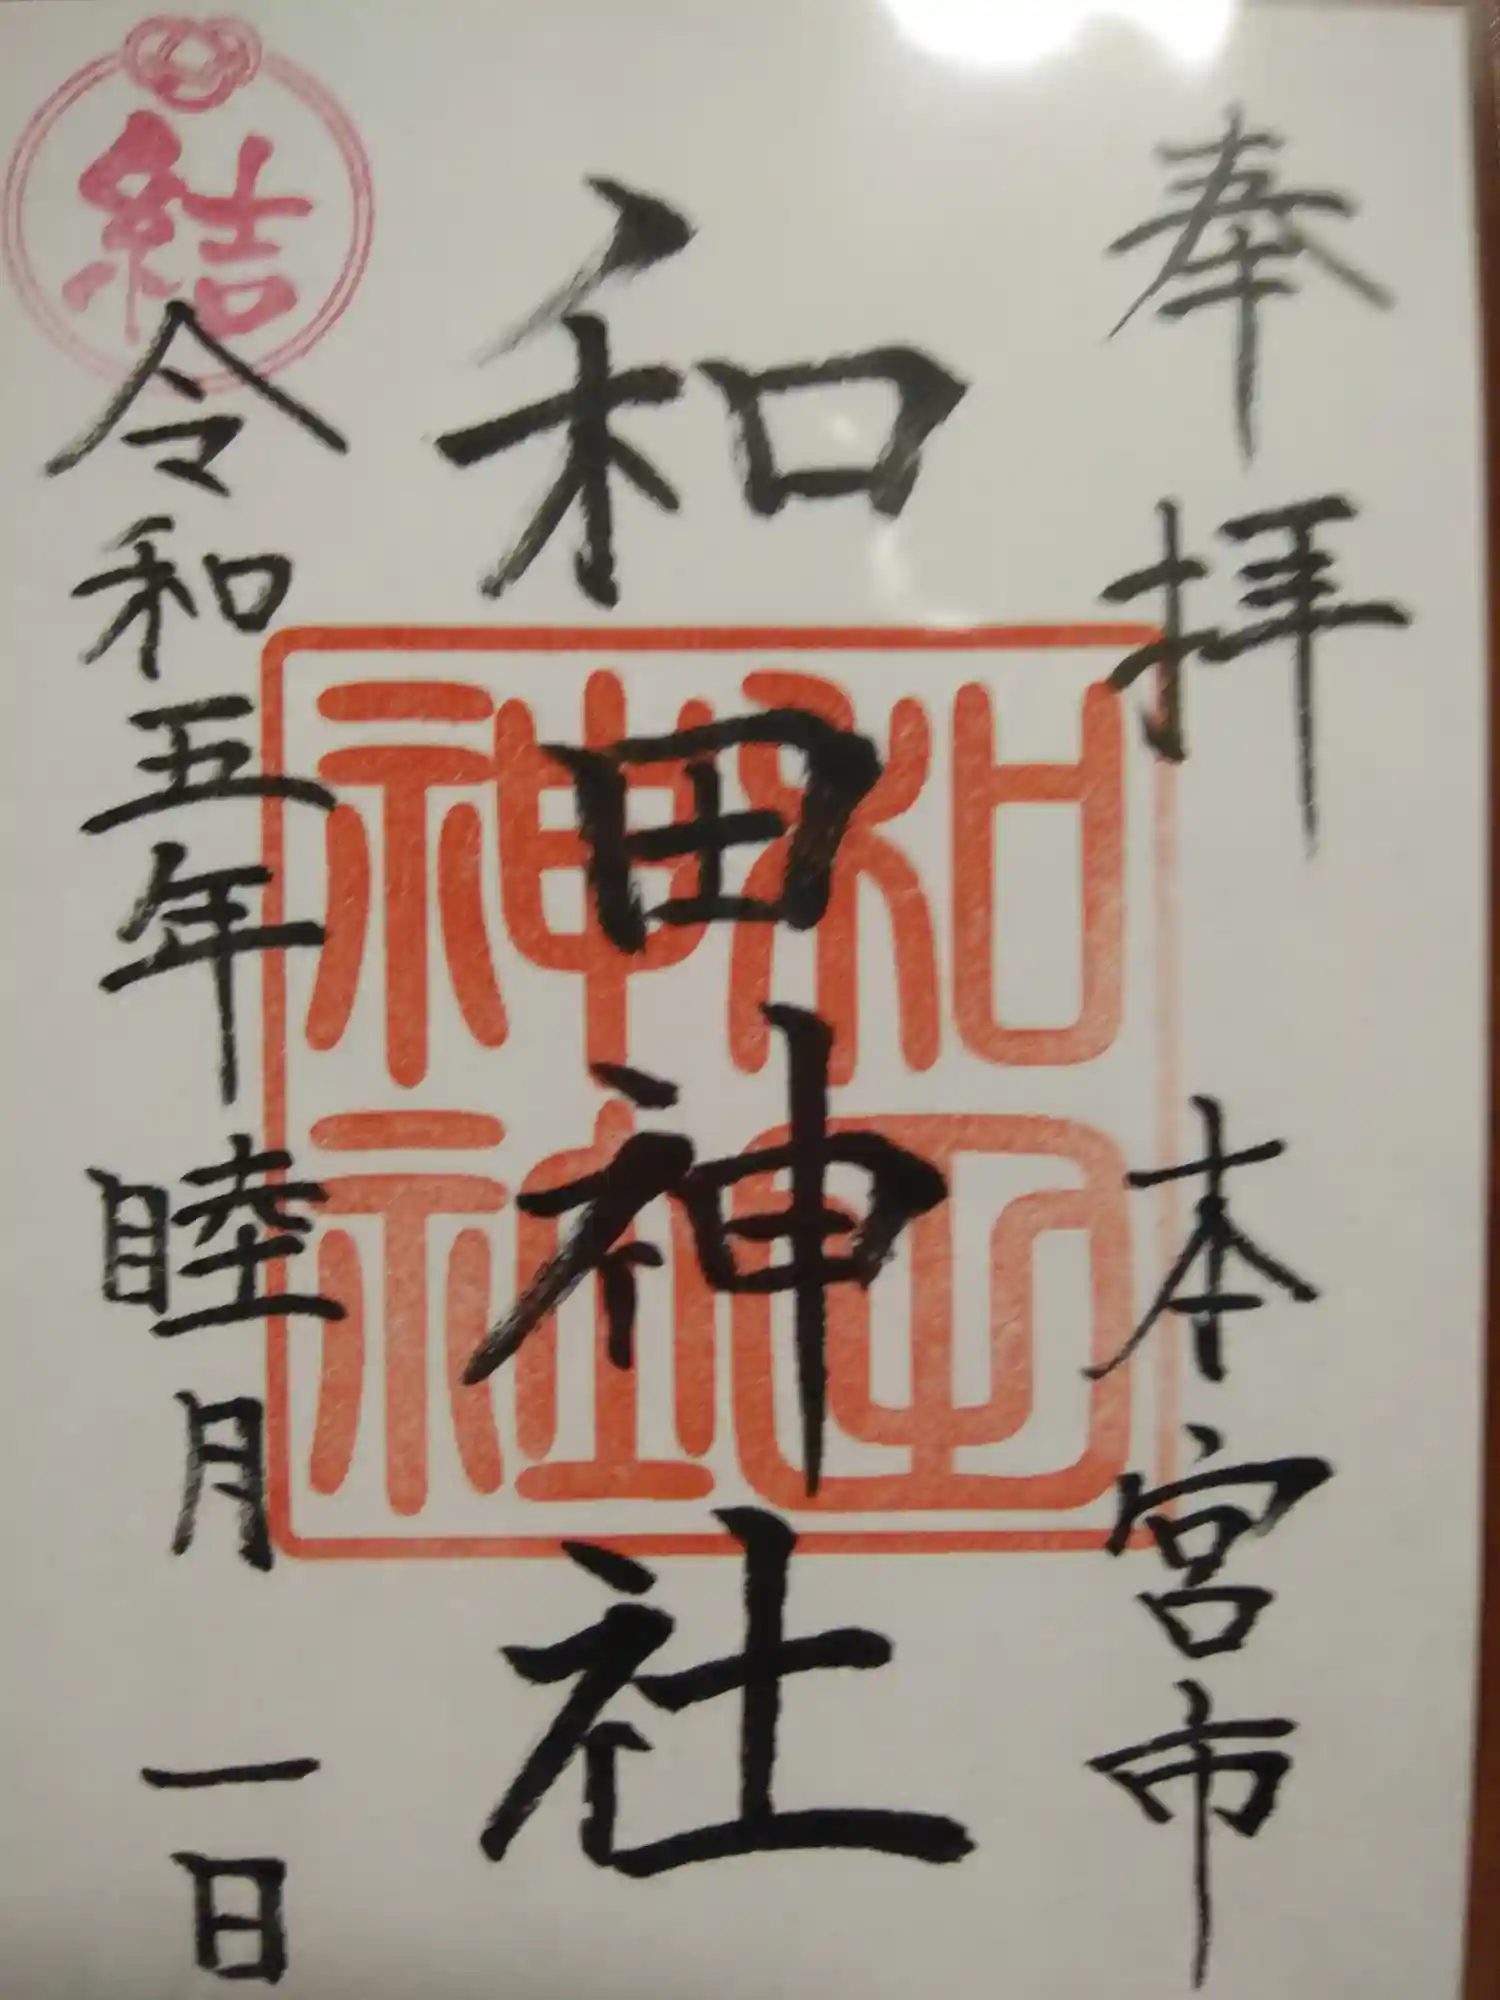 奉拝
本宮市
和田神社
和田神社
結
令和五年睦月一日